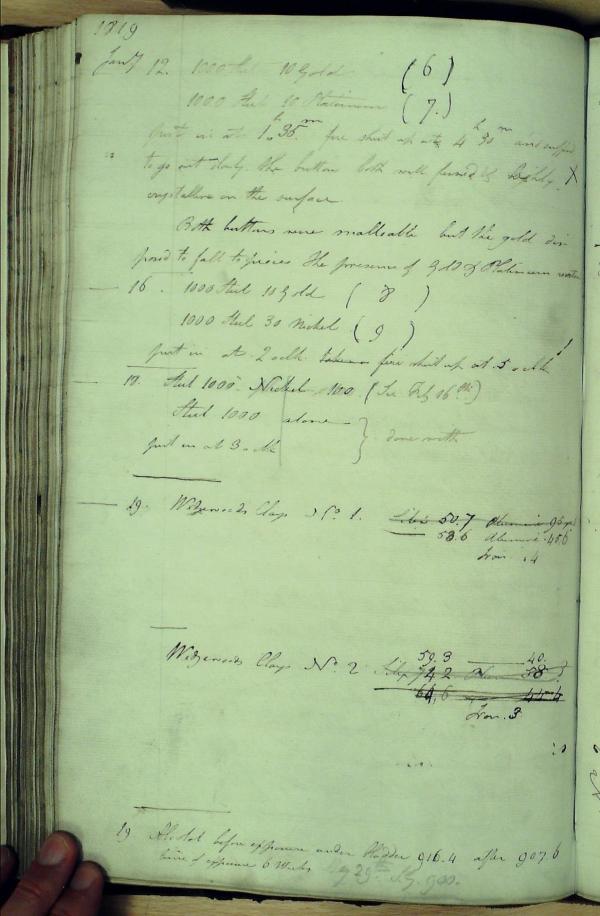 1819
Jany 12. 1000 Steel 10 Gold (6)
1000 Steel 10 Platinum (7.)
put in at 1h 35m fire shut up at 4h 30m and suffered
to go out slowly the button both well fused & highly X
crystalline on the surface
Both buttons were malleable but the gold dis
posed to fall to pieces the presence of Gold & Platinum
16. 1000 Steel 10 Gold (8)
1000 Steel 30 Nickel (9)
put in at 2 oclk fire shut up at 5 oclk
Steel 1000 Nickel 100 (See Feby 16th)
Steel 1000 alone } done with
put in at 3 oclk
19. Wedgewoods Clays No. 1. Silex 50.7 Alumina
53.6 Alumina 45.6
Iron .4
59.3 40.
Wedgewoods Clays No. 2 Silex 54.2 38
64.6
Iron .3
19 Alcohol before exposure under Bladder 916.4 after 907.6
time of exposure 6 Weeks 29th 900.